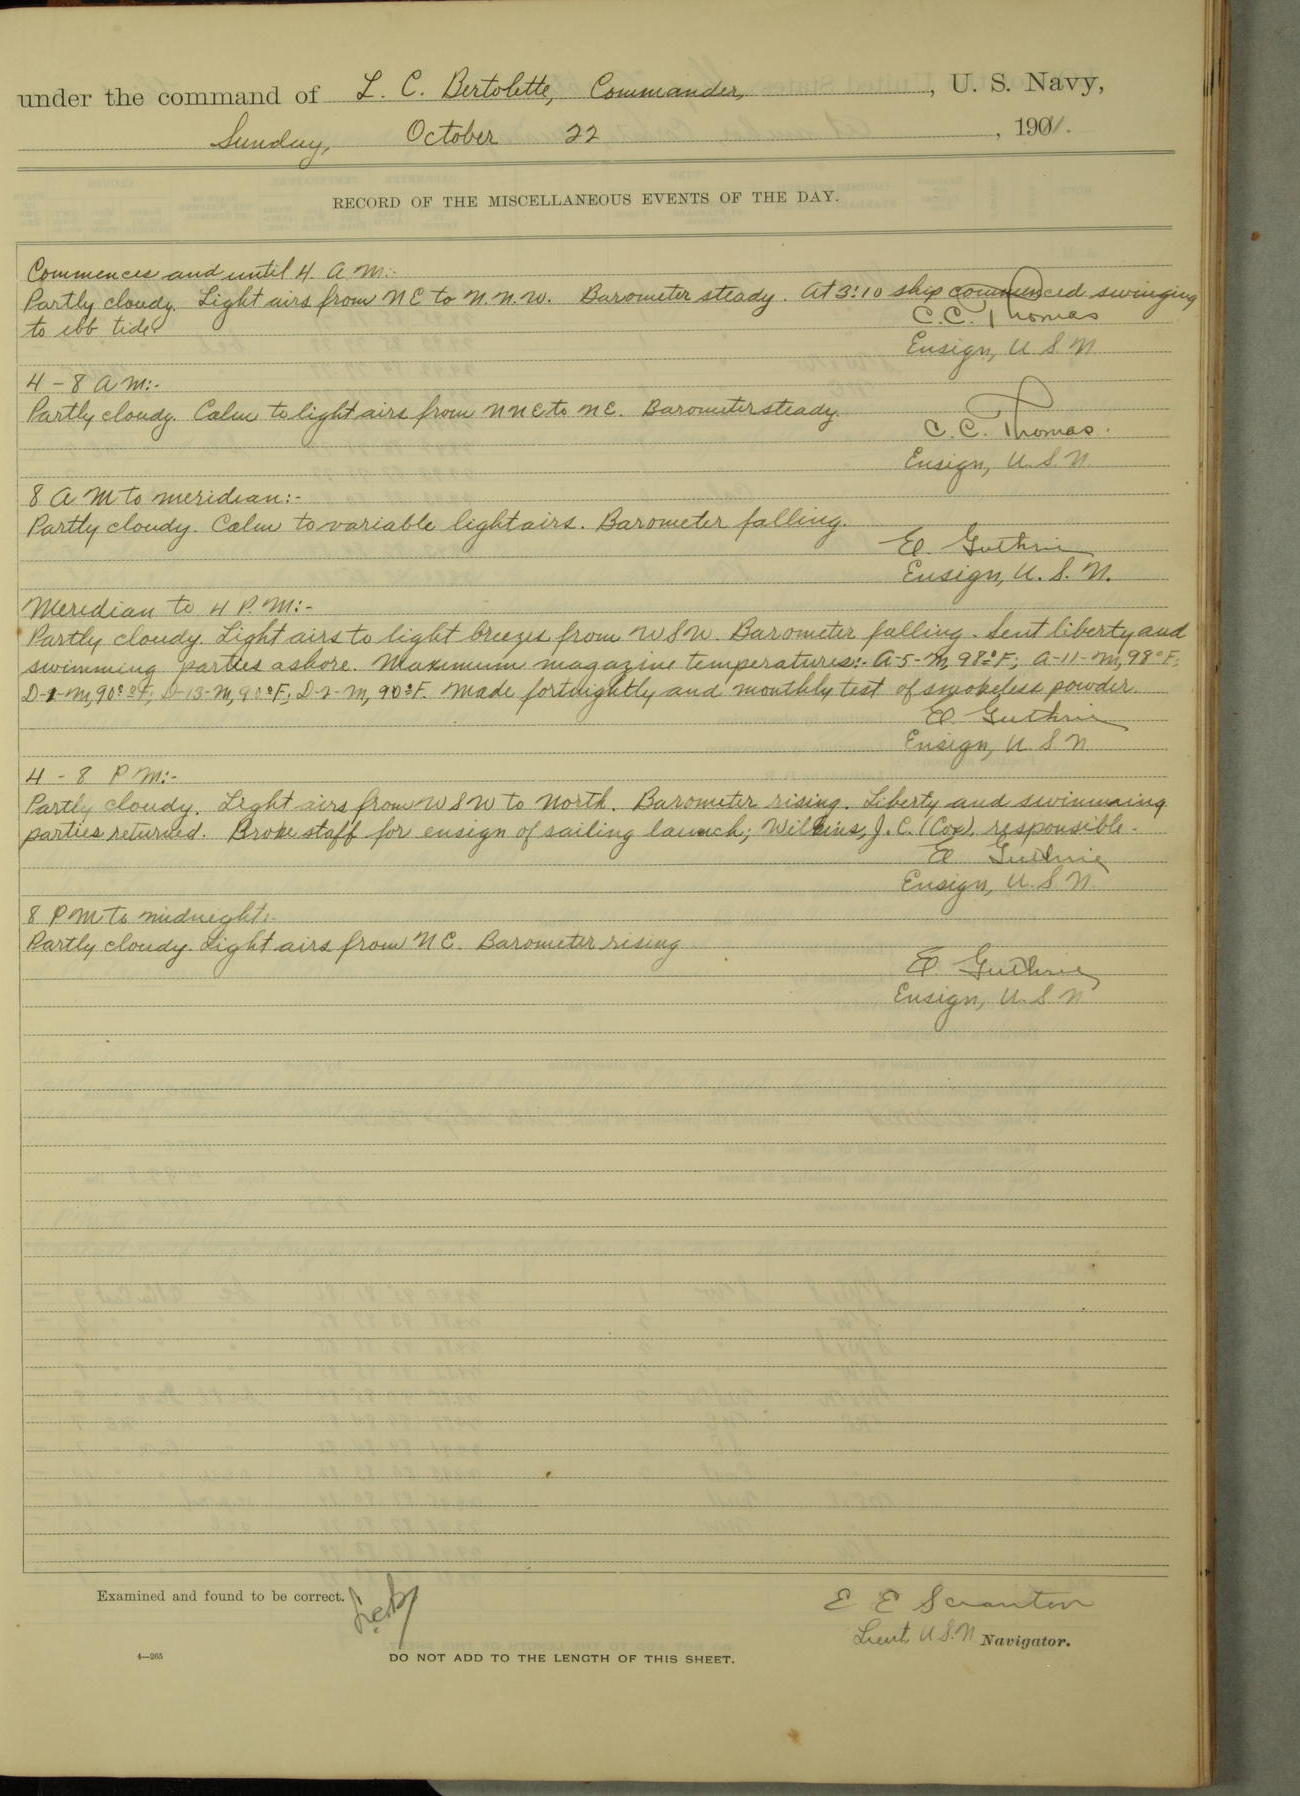 under the command of L. C. Bertolette, Commander, , U. S. Navy,
Sunday, October 22 , 1901.
RECORD OF THE MISCELLANEOUS EVENTS OF THE DAY.
Commences and until 4 A M:-
Partly cloudy. Light airs from N E to N. N. W. Barometer steady. At 3:10 ship commenced swinging
to ebb tide.
C. C. Thomas
Ensign, U S N
4 - 8 A M:-
Partly cloudy. Calm to light airs from N N E to N E. Barometer steady.
C. C. Thomas.
Ensign, U. S. N.
8 A M to meridian:-
Partly cloudy. Calm to variable light airs. Barometer falling.
E. Guthrie
Ensign, U. S. N.
Meridian to 4 P. M:-
Partly cloudy. Light airs to light breezes from W S W. Barometer falling. Sent liberty and
swimming parties ashore. Maximum magazine temperatures:- A-5-M, 98°F; A-11-M, 98°F;
D-1-M, 90°F; D-13-M, 90°F; D-2-M, 90°F. Made fortnightly and monthly test of smokeless powder.
E. Guthrie
Ensign, U S N
4 - 8 P M:-
Partly cloudy. Light airs from W S W to North. Barometer rising. Liberty and swimming
parties returned. Broke staff for ensign of sailing launch; Wilkins, J. C. (Cox), responsible.
E Guthrie
Ensign, U. S. N.
8 P M to midnight:-
Partly cloudy. Light airs from N E. Barometer rising
E Guthrie
Ensign, U. S N
Examined and found to be correct.
E E Scranton
Lieut U. S. N Navigator.
4—265
DO NOT ADD TO THE LENGTH OF THIS SHEET.